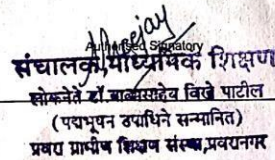 Authorised Signatory
संचालक,माध्यमिक शिक्षण
लोकनेते डॉ.बाळासाहेब विखे पाटील
(पद्मभूषन उपाधिने सन्मानित)
प्रवरा ग्रामीण शिक्षण संस्था,प्रवरानगर